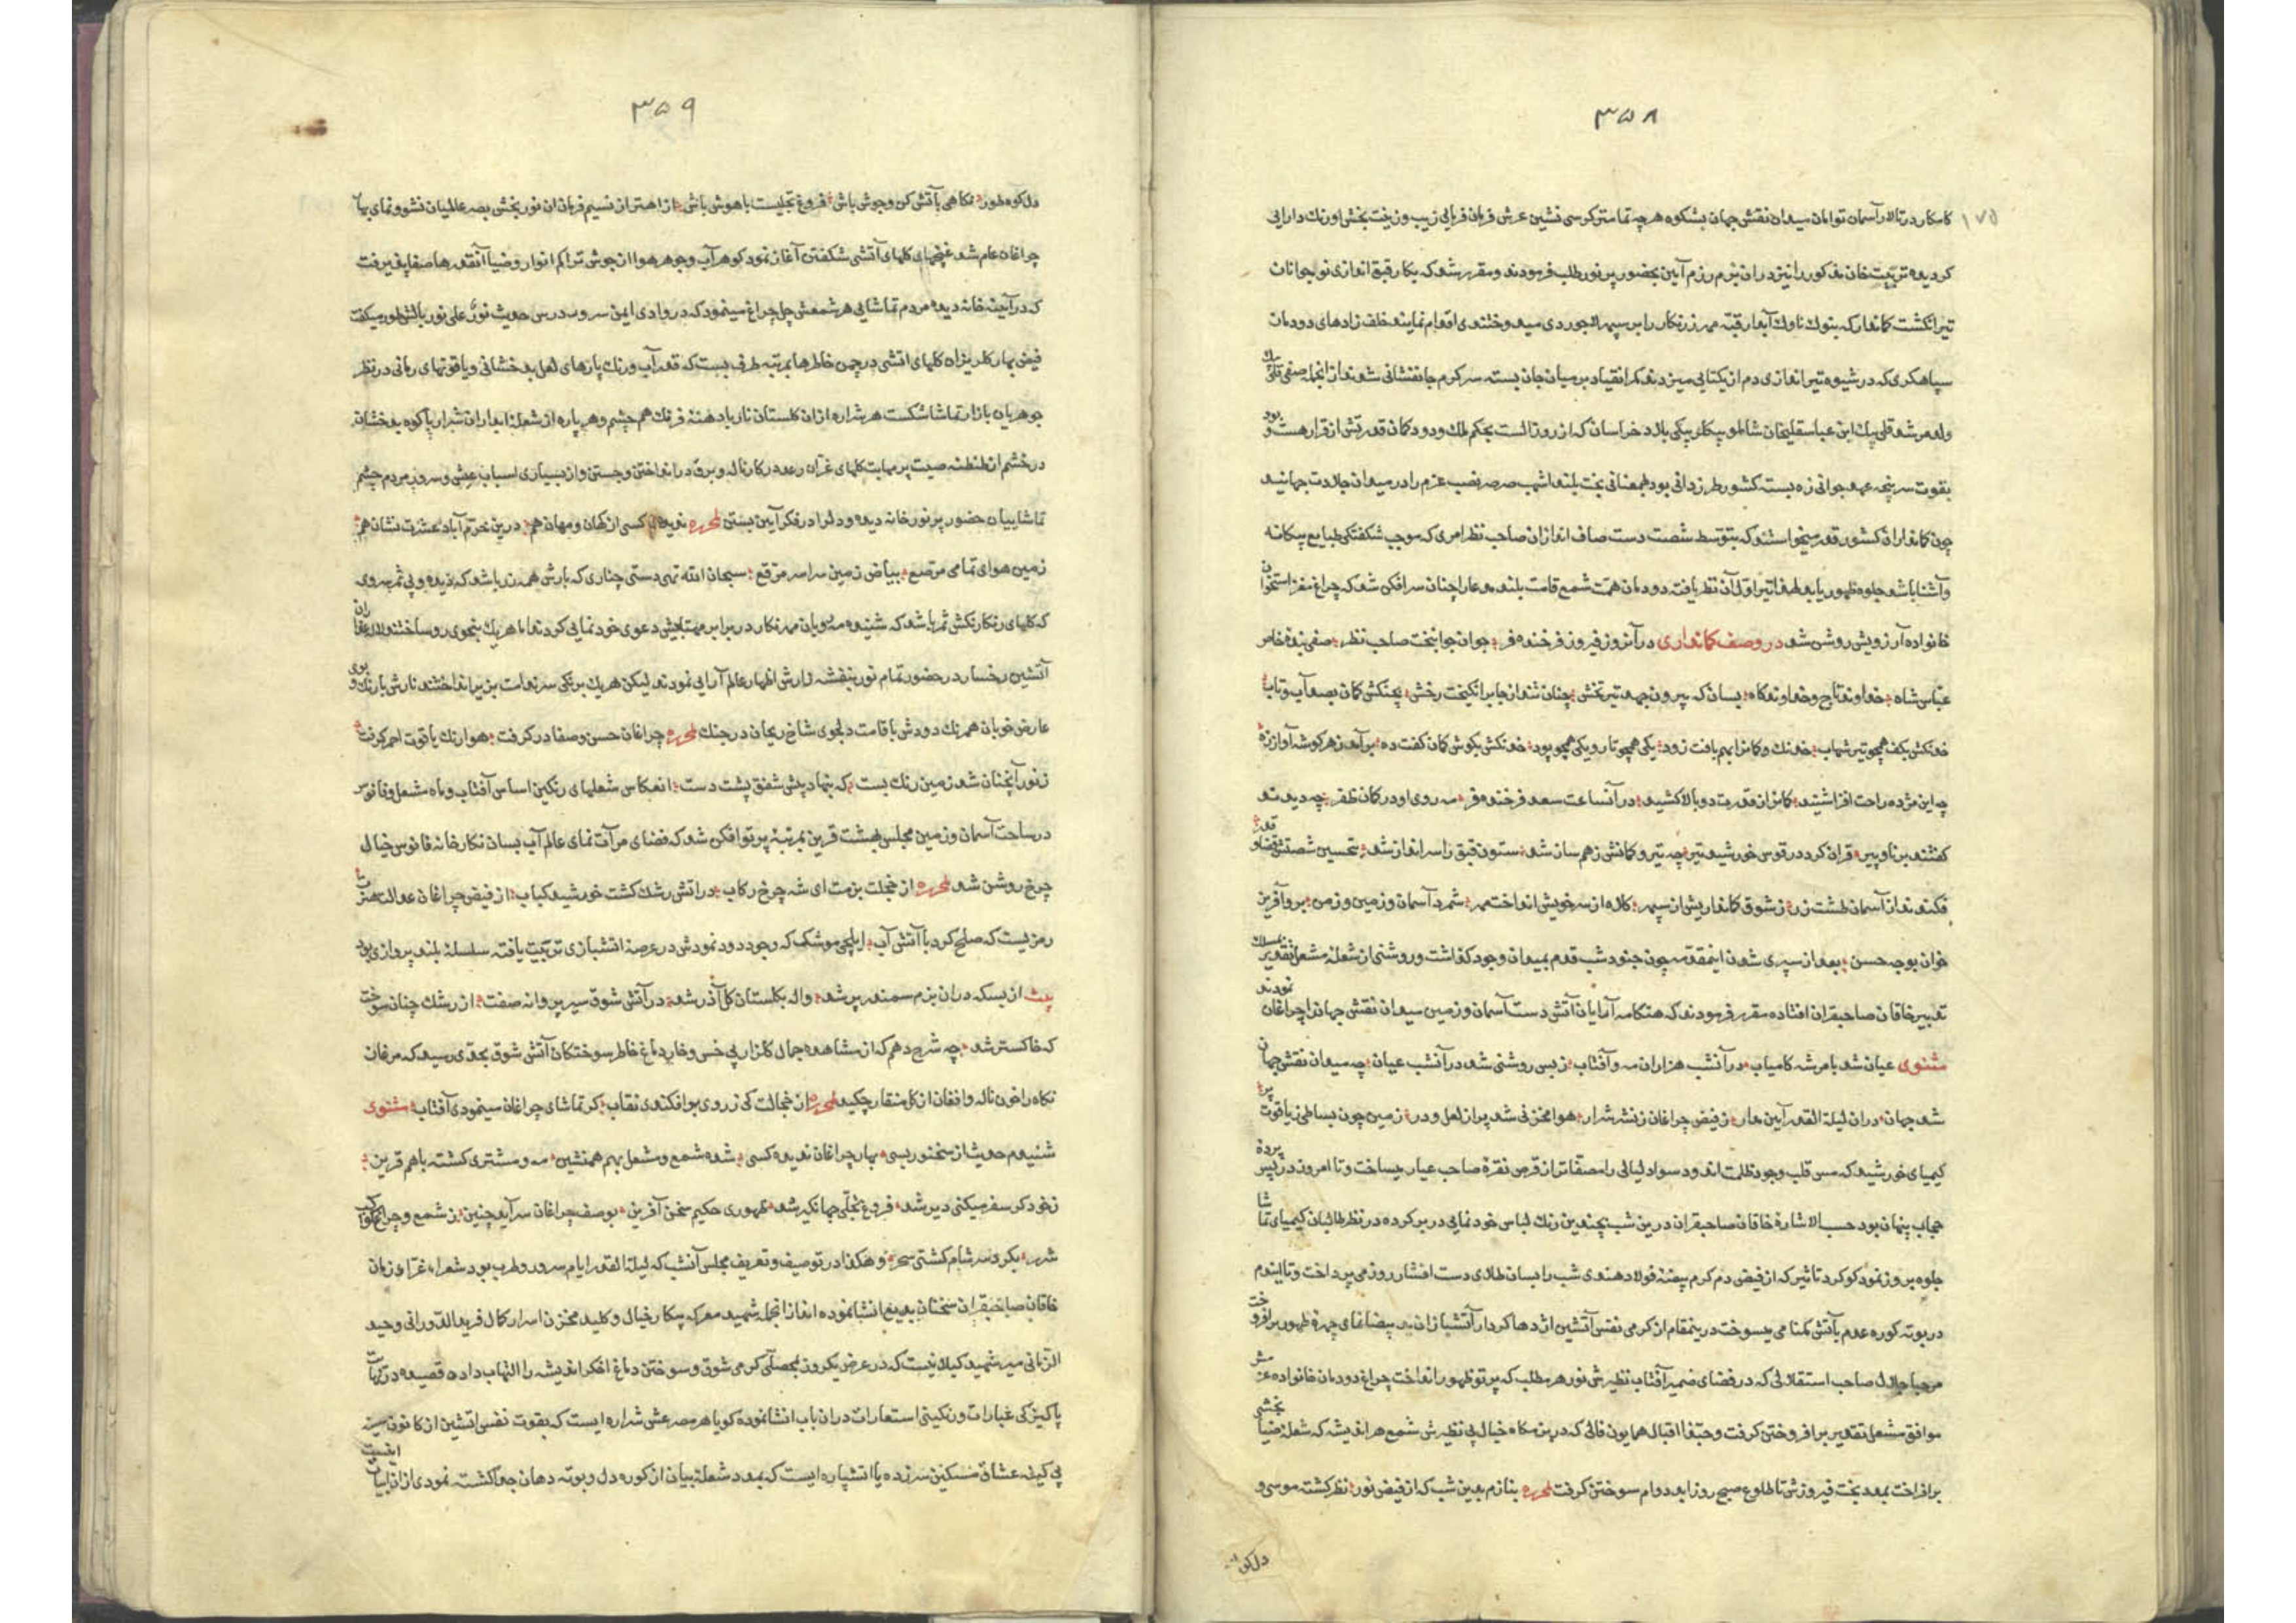 ۳۵۸
۱۷۵
کامکار در تالار آسمان توامان میدان نقش جهان بشکوه هرچه تمامتر کرسی نشین عرش فرمان فرمائی زیب و زینت بخش اورنك دارایی
کردیده تربیت خان مذکور را نیز در ان بزم رزم آیین بحضور پر نور طلب فرمودند و مقرر شد که بکار قبق اندازی نوجوانان
تیر انکشت کماندار که بنوك ناوك آبدار قبّه مهر زرنکار را بر سپهر لاجوردی میدوختندی اقدام نمایند خلف زادهای دودمان
سپاهکری که در شیوه تیراندازی دم از یکتایی میزدند کمر انقیاد بر میان جان بسته سرکرم جانفشانی شدند از انجمله صفی قلی بك
ولد مرشد قلی بیك ابن عباسقلیخان شاملو بیکلر بیکی بلاد خراسان که از روز الست بحکم ملك ودود کمان قدرتش از قرار هست و بود
بقوت سرپنجه عهد جوانی زه بسته کشور طرزدانی بود بمعنانی بخت بلند اشهب صرصر نصیب عزم را در میدان جلادت جهانید
چون کمانداران کشور قدر میخواستند که بتوسط شصت دست صاف اندازان صاحب نظر امری که موجب شکفتکی طبایع بیکانه
و آشنا باشد جلوه ظهور یابد لهذا تیر اول آن نظر یافته دودمان همت شمع قامت بلند مدعا را چنان سرافکن شد که چراغ مغز استخوان
خانواده آرزویش روشن شد در وصف کمانداری در آنروز فیروز فرخنده فر جوان جوانبخت صاحب نظر صفی بندهٔ خاص
عباس شاه خداوند تاج و خداوند کاه بسان که بیرون جهد تیر تخش چنان تند از جا برانکیخت رخش بچنکش کمان بصد آب و تاب
خدنکش بکف همچو تیر شهاب خدنك و کمانرا بهم بافت زود یکی همچو تار و یکی همچو پود خدنکش بکوش کمان کفت ده برآمد ز هر کوشه آواز زه
چه این مژده راحت افزا شنید کمانرا ز قدرت دوبالا کشید در آنساعت سعد فرخنده فر مه روی او در کمان ظفر چه دیدند
کفتند برنا و پیر قران کرد در قوس خورشید تیر چه تیر و کمانش ز هم سان شد ستون قبق را سرانداز شد بتحسین شصتش قضا و قدر
فکندند از آسمان طشت زر ز شوق کمانداریش از سپهر کلاه از سر خویش انداخت مهر شمرد آسمان و زمین و زمن برو آفرین
خوان بوجه حسن بعد از سپری شدن اینمقدمه چون جنود شب قدم بمیدان وجود کذاشت و روشنی از شعله مشعل تقدیر بمسلك
تدبیر خاقان صاحبقران افتاده مقرر فرمودند که هنکامه آرایان آتش دست آسمان و زمین میدان نقش جهانرا چراغان نمودند
مثنوی عیان شد بامر شه کامیاب در آنشب هزاران مه و آفتاب ز بس روشنی شد در آنشب عیان چه میدان نقش جهان
شد جهان در ان لیلة القدر آیین مدار ز فیض چراغان ز نشر شرار هوا مخزنی شد پر از لعل و در زمین چون بساطی ز یاقوت پر
کیمیای خورشید که مس قلب وجود ظلمت اندود سواد لیالی را مصفاتر از قرص نقرهٔ صاحب عیار میساخت و تا امروز در پس پردهٔ
حجاب پنهان بود حسب الاشارهٔ خاقان صاحبقران درین شب بچندین رنك لباس خودنمایی در بر کرده در نظر طالبان کیمیای تماشا
جلوه بروز نمود کوکرد تاثیر که از فیض دم کرم بیضهٔ فولاد هندی شب را بسان طلای دست افشار روز می پرداخت و تا الیوم
در بوته کوره عدم بآتش کمنامی میسوخت درینمقام از کرمی نفس آتشین اژدها کردار آتشبازان ید بیضا نمای چهره ظهور برافروخت
مرحبا جلال صاحب استقلالی که در فضای ضمیر آفتاب نظیرش نور هر مطلب که پرتو ظهور انداخت چراغ دودمان خانواده عزمش
موافق مشعل تقدیر برافروختن کرفت و حبّذا اقبال همایون فالی که در بزمکاه خیال بی نظیرش شمع هر اندیشه که شعله ضیا بخشی
برافراخت بمدد بخت فیروزش تا طلوع صبح روز ابد دوام سوختن کرفت لمحرره بنازم بدین شب که از فیض نور نظر کشته موسی و
دل کوه
۳۵۹
دل کوه طور نکاهی بآتش کن و جوش باش فروغ تجلیست باهوش باش از اهتراز نسیم فرمان ان نور بخش بصر عالمیان نشو و نمای بهار
چراغان عام شد غنچهای کلهای آتشی شکفتن آغاز نمود کوهر آب و جوهر هوا از جوش تراکم انوار و ضیا آنقدرها صفا پذیرفت
که در آیینه خانه دیده مردم تماشایی هر شمعش چل چراغ مینمود که در وادی ایمن سرو بدرس حدیث نورٌ علی نور با آتش طور میکفت
فیض بهار کلریزان کلهای اتشی در چمن خاطرها بمرتبه طرف بست که قدر آب و رنك پارهای لعل بدخشانی و یاقوتهای رمانی در نظر
جوهریان بازار تماشا شکست هر شراره از ان کلستان نار با دهنهٔ فرنك هم چشم و هر پاره از شعله ابدار ان شرار با کوه بدخشان
در خشم از طنطنه صیت پر مهابت کلهای غران رعد در کار ناله و برق در انداختن و جستن و از بسیاری اسباب عیش و سرور مردم چشم
تماشاییان حضور پر نور خانه دیده و دلرا در فکر آیین بستن لمحرره ندیده کسی از کهان و مهان هم درین خرّم آباد عشرت نشان هم
زمین هوای تمامی مرصع بیاض زمین سراسر مرقع سبحان الله تهی دستی چناری که بارش همه زر باشد که دیده و بی ثمر سروی
که کلهای رنکارنکش ثمر باشد که شنیده مه رویان مهر نکار در برابر مهتابیش دعوی خودنمایی کردند اما هر یك بنحوی رو ساختند و لاله عذاران
آتشین رخسار در حضور تمام نور بنفشه وارش اظهار عالم آرایی نمودند لیکن هر یك برنکی سر ندامت بزیر انداختند نارش با رنك و بوی
عارض خوبان همرنك دودش با قامت دلجوی شاخ ریحان در جنك لمحرره چراغان حسن و صفا در کرفت هوا رنك یاقوت احمر کرفت
ز نور آنچنان شد زمین رنك بست که بنهاد پیش شفق پشت دست انعکاس شعلهای رنکین اساس آفتاب و ماه مشعل و فانوس
در ساحت آسمان و زمین مجلس بهشت قرین بمرتبهٔ پرتوافکن شد که فضای مرآت نمای عالم آب بسان نکارخانه فانوس خیال
چرخ روشن شد لمحرره از خجلت بزمت ای شه چرخ رکاب در اتش رشك کشت خورشید کباب از فیض چراغان عدالت هنرت
رمزیست که صلح کرد با آتش آب ایلچی موشك که وجود دود نمودش در عرصهٔ اتشبازی تربیت یافته سلسلهٔ بلند پروازی بود
بیت از بسکه دران بزم سمندر پر شد واله بکلستان کل آذر شد در آتش شوق سیر پروانه صفت از رشك چنان سوخت
که خاکستر شد چه شرح دهم که از مشاهده جمال کلزار بی خس و خار دماغ خاطر سوختکان آتش شوق بحدّی رسید که مرغان
نکاه را خون ناله و افغان از کل منقار چکید لمحرره از خجالت کی ز روی بر افکندی نقاب کر تماشای چراغان مینمودی آفتاب مثنوی
شنیدم حدیث از سخنور بسی بهار چراغان ندیده کسی شده شمع و مشعل بهم همنشین مه و مشتری کشته باهم قرین
ز خود کر سفر میکنی دیر شد فروغ تجلّی جهانکیر شد ظهوری حکیم سخن آفرین بوصف چراغان سراید چنین ز شمع و چراغ کواکب
شرر بکرد سر شام کشتی سحر و هکذا در توصیف و تعریف مجلس آنشب که لیلة القدر ایام سرور و طرب بود شعراء غرّاء زمان
خاقان صاحبقران سخنان بدیع انشا نموده اند از انجمله شهید معرکه پیکار خیال و کلید مخزن اسرار کمال فرید الدورانی وحید
الزمانی میر شهید کیلانیست که در عرض یکروز لمحصلی کرمی شوق و سوختن دماغ افکر اندیشه را التهاب داده قصیده در نهایت
پاکیزکی عبارات و رنکینی استعارات دران باب انشا نموده کویا هر مصرعش شراره ایست که بقوت نفس اتشین از کانون سینه
بی کینه عشاق مسکین سر زده یا اتشپاره ایست که بمدد شعله بیان از کوره دل و بوته دهان جدا کشته نمودی از ان ابیات اینست